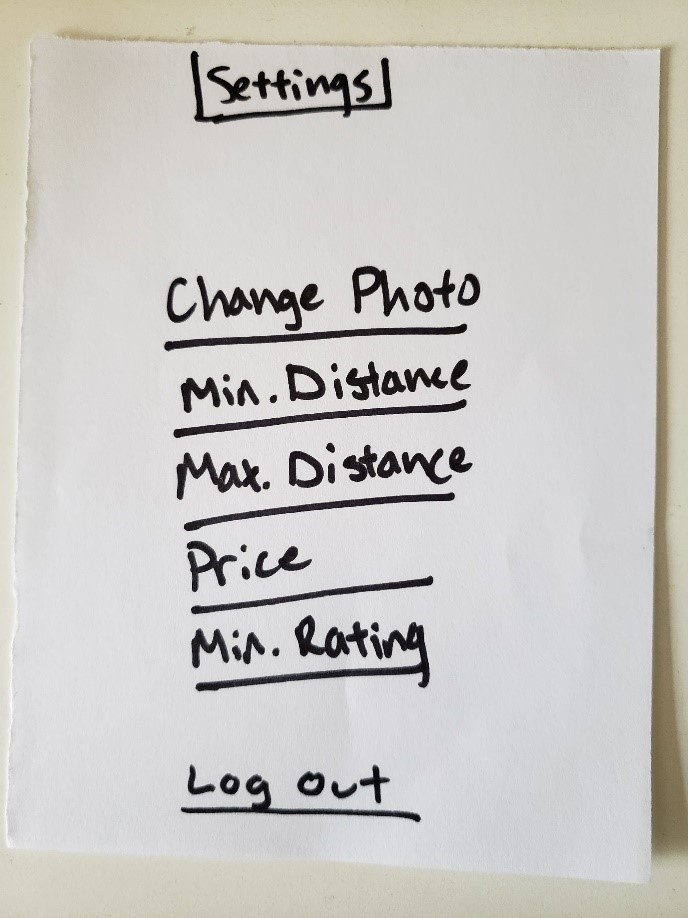 Settings
Change Photo
Min. Distance
Max. Distance
Price
Min. Rating
Log Out